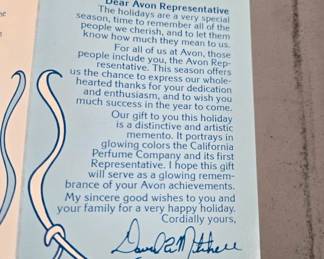 Dear Avon Representative
The holidays are a very special
season, time to remember all of the
people we cherish, and to let them
know how much they mean to us.
For all of us at Avon, those
people include you, the Avon Rep-
resentative. This season offers
us the chance to express our whole-
hearted thanks for your dedication
and enthusiasm, and to wish you
much success in the year to come.
Our gift to you this holiday
is a distinctive and artistic
memento. It portrays in
glowing colors the California
Perfume Company and its first
Representative. I hope this gift
will serve as a glowing remem-
brance of your Avon achievements.
My sincere good wishes to you and
your family for a very happy holiday.
Cordially yours,